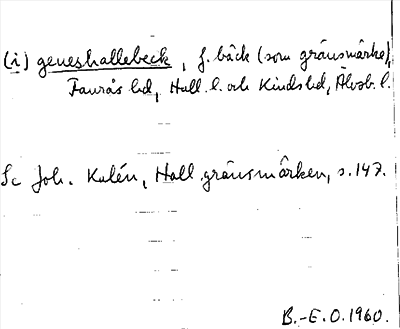 (i) geneshallebeck, f. bäck (som gränsmärke),
Faurås hd, Hall. l. och Kinds hd, Älvsb. l.
Se Joh. Kalén, Hall. gränsmärken, s. 147.
B.-E. O. 1960.